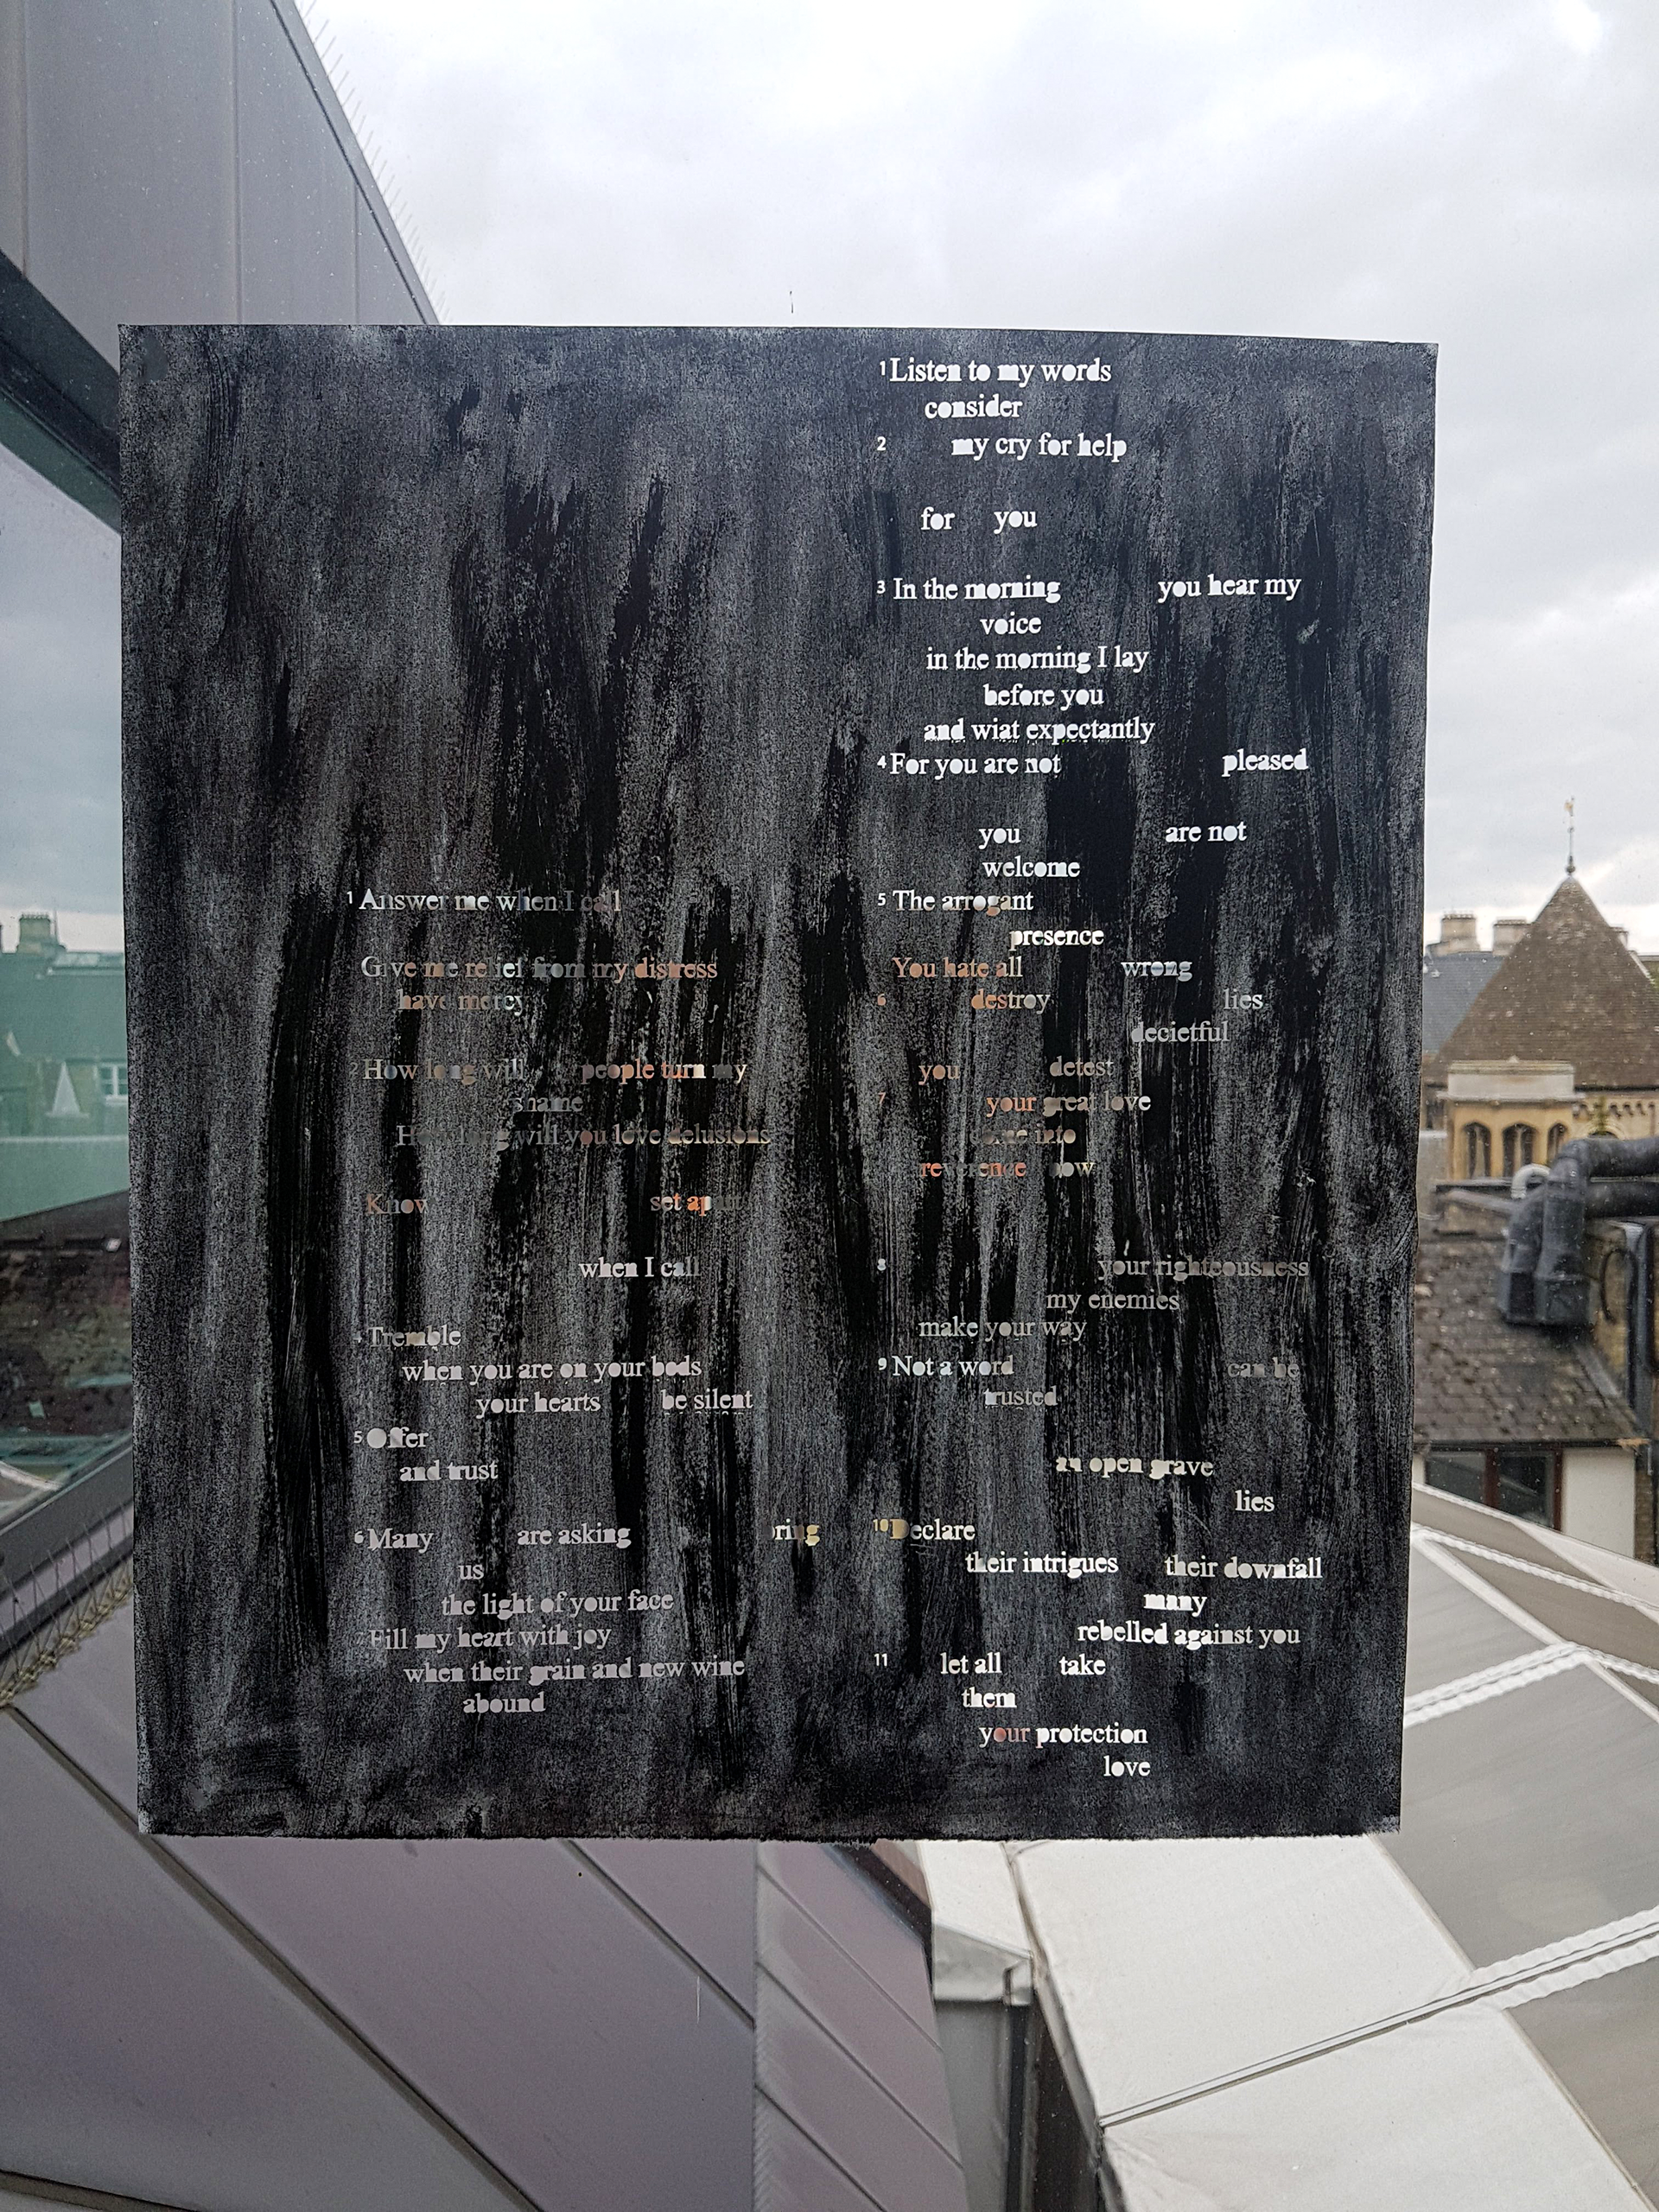 1 Answer me when I call
Give me relief from my distress
have mercy
2 How long will people turn my
shame
How long will you love delusions
Know set apart
when I call
4 Tremble
when you are on your beds
your hearts be silent
5 Offer
and trust
6 Many are asking bring
us
the light of your face
7 Fill my heart with joy
when their grain and new wine
abound
1 Listen to my words
consider
2 my cry for help
for you
3 In the morning you hear my
voice
in the morning I lay
before you
and wiat expectantly
4 For you are not pleased
you are not
welcome
5 The arrogant
presence
You hate all wrong
6 destroy lies
decietful
you detest
7 your great love
come into
reverence bow
8 your righteousness
my enemies
make your way
9 Not a word can be
trusted
an open grave
lies
10 Declare
their intrigues their downfall
many
rebelled against you
11 let all take
them
your protection
love